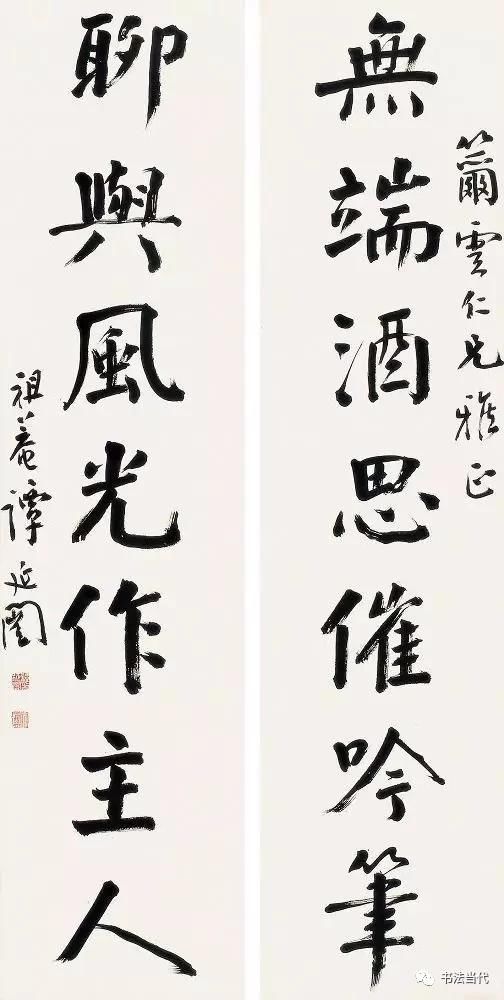 籋雲仁兄雅正
無端酒思催吟筆
聊與風光作主人
祖菴譚延闓
书法当代